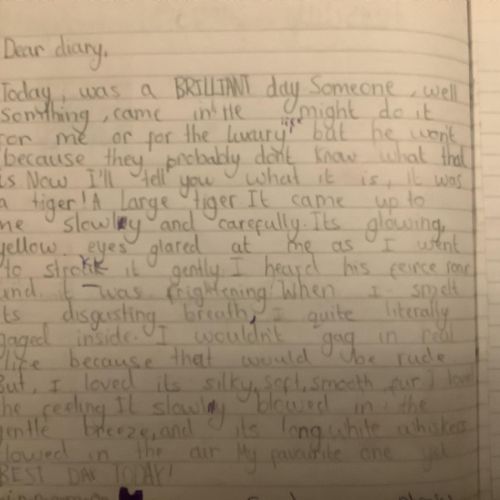 Dear diary,
Today, was a BRILLIANT day Someone, well
somthing, came in the might do it
for me or for the luxury life but he wont
because they probably don't know what that
is Now I'll tell you what it is, it was
a tiger! A large tiger It came up to
me slowley and carefully. Its glowing,
yellow eyes glared at me as I went
to strokk it gently I heard his feirce roar
and it was frightening. When I smelt
its disgusting breath, I quite literally
gaged inside. I wouldn't gag in real
life because that would be rude
But, I loved its silky, soft, smooth fur I love
the feeling It slowly blowed in the
gentle breeze, and its long, white whiskers
flowed in the air My favarite one yet
BEST DAY TODAY!